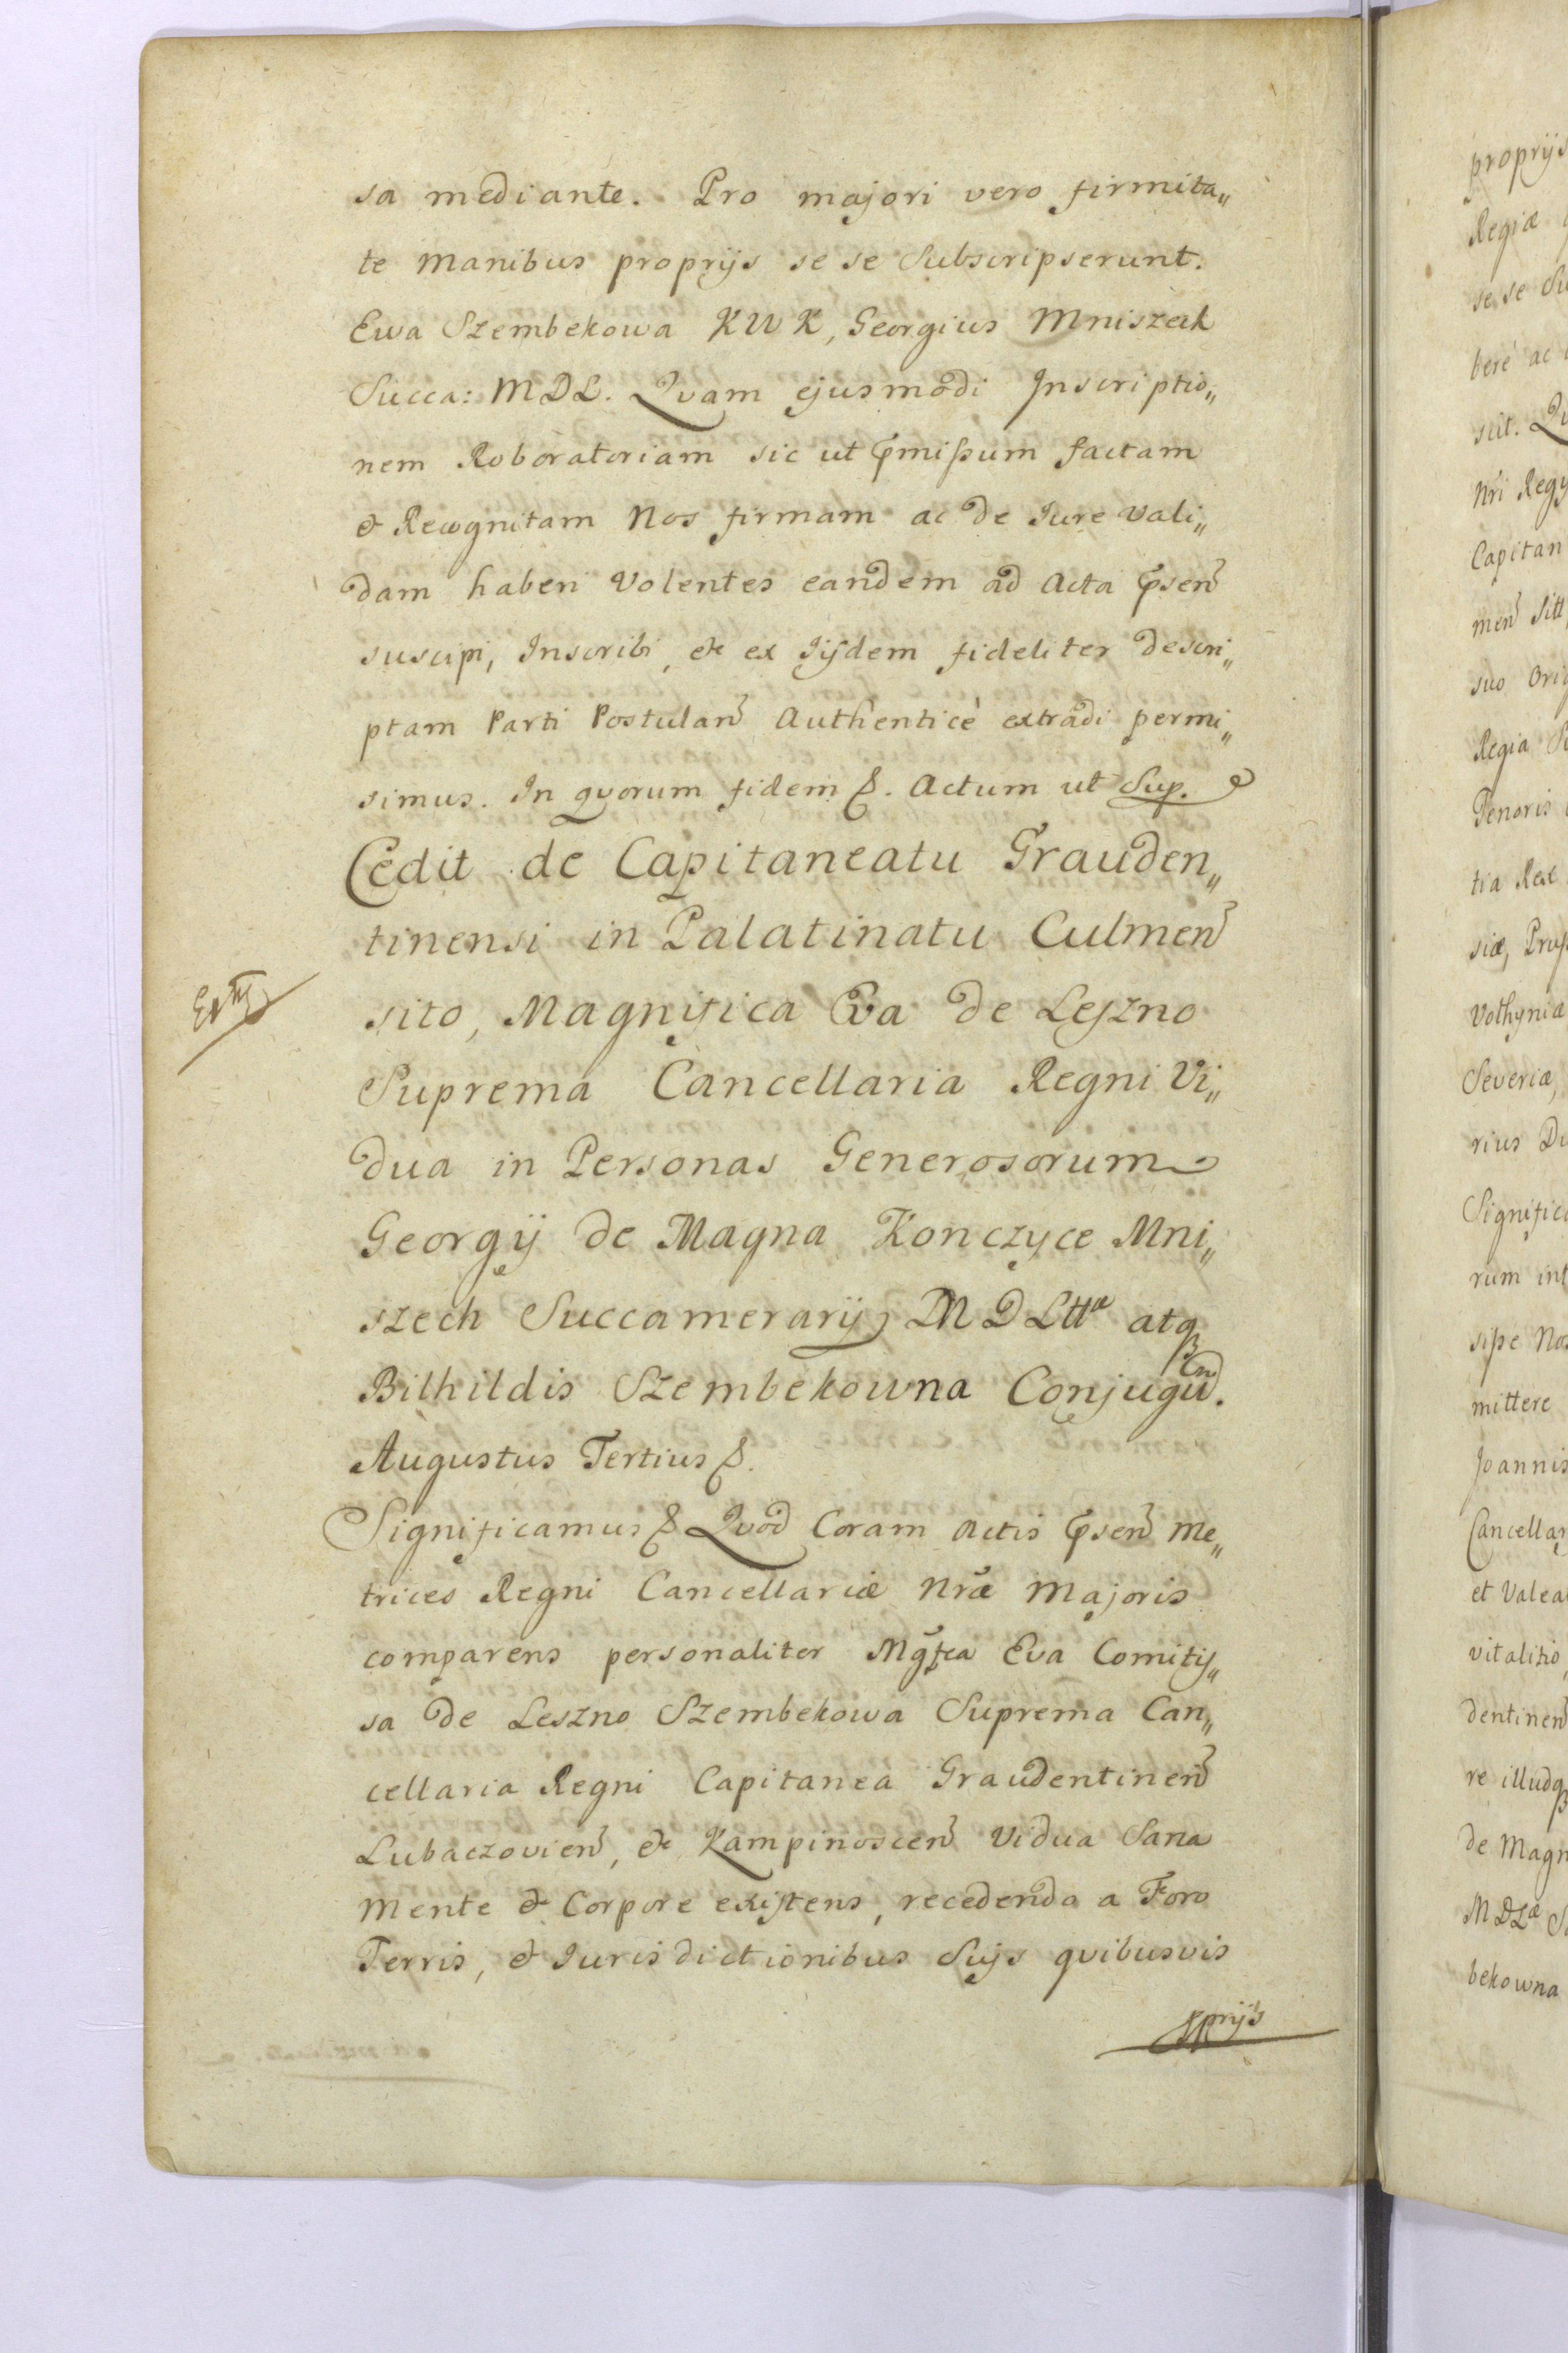 sa mediante. Pro majori vero firmita„
te manibus proprijs se se Subscripserunt.
Ewa Szembekowa KWK, Georgius Mniszek
Succa: MDL. Qvam ejusmodi Inscriptio„
nem Roboratoriam sic ut p̄missum factam
& Recognitam Nos firmam ac de Jure vali„
dam haberi Volentes eandem ad Acta p̄sen̄
suscipi, Inscribi, & ex Iisdem fideliter descri„
ptam Parti Postulan̄ Authenticè extradi permi„
simus. In qvorum fidem &. Actum ut Sup.
Cedit de Capitaneatu Grauden„
tinensi in Palatinatu Culmen̄
sito, Magnifica Eva de Leszno
Suprema Cancellaria Regni Vi„
dua in Personas Generosorum
Georgij de Magna Konczyce Mni„
szech Succamerarij M D Lttæ atq
Bilhildis Szembekowna Conjugū.
Augustus Tertius &.
Significamus & Qvod Coram Actis p̄sen̄ Me„
trices Regni Cancellariæ Nr̄æ Majoris
comparens personaliter Mg̃fca Eva Comitis„
sa de Leszno Szembekowa Suprema Can„
cellaria Regni Capitanea Graudentinen̄
Lubaczovien̄, & Kampinoscen̄ Vidua Sana
Mente & Corpore existens, recedendo a Foro
Terris, & Jurisdictionibus Suis qvibusvis
pprijs
proprijs
Regiæ
se se Su
berè ac
Nr̄i Regy
Capitan
men̄ Sitt
suo Ori
Regia
Tenoris
tia Rex
siæ, Prus
Volhyniæ
Severiæ,
rius Du
Significa
rum int
sisse Nos
mittere
Joannis
Cancellar
et Valea
vitalitio,
dentinen̄
re illudq
de Magn
M D Læ S
bekowna